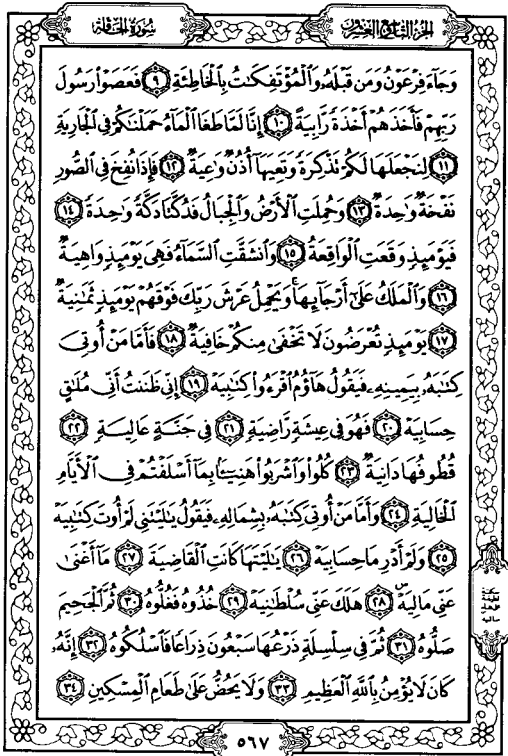 سُورَةُ الحَاقَّة
الجُزءُ التَّاسِعُ وَالعِشرُونَ
وَجَآءَ فِرۡعَوۡنُ وَمَن قَبۡلَهُۥ وَٱلۡمُؤۡتَفِكَٰتُ بِٱلۡخَاطِئَةِ ٩ فَعَصَوۡاْ رَسُولَ
رَبِّهِمۡ فَأَخَذَهُمۡ أَخۡذَةٗ رَّابِيَةً ١٠ إِنَّا لَمَّا طَغَا ٱلۡمَآءُ حَمَلۡنَٰكُمۡ فِي ٱلۡجَارِيَةِ
١١ لِنَجۡعَلَهَا لَكُمۡ تَذۡكِرَةٗ وَتَعِيَهَآ أُذُنٞ وَٰعِيَةٞ ١٢ فَإِذَا نُفِخَ فِي ٱلصُّورِ
نَفۡخَةٞ وَٰحِدَةٞ ١٣ وَحُمِلَتِ ٱلۡأَرۡضُ وَٱلۡجِبَالُ فَدُكَّتَا دَكَّةٗ وَٰحِدَةٗ ١٤
فَيَوۡمَئِذٖ وَقَعَتِ ٱلۡوَاقِعَةُ ١٥ وَٱنشَقَّتِ ٱلسَّمَآءُ فَهِيَ يَوۡمَئِذٖ وَاهِيَةٞ
١٦ وَٱلۡمَلَكُ عَلَىٰٓ أَرۡجَآئِهَاۚ وَيَحۡمِلُ عَرۡشَ رَبِّكَ فَوۡقَهُمۡ يَوۡمَئِذٖ ثَمَٰنِيَةٞ
١٧ يَوۡمَئِذٖ تُعۡرَضُونَ لَا تَخۡفَىٰ مِنكُمۡ خَافِيَةٞ ١٨ فَأَمَّا مَنۡ أُوتِيَ
كِتَٰبَهُۥ بِيَمِينِهِۦ فَيَقُولُ هَآؤُمُ ٱقۡرَءُواْ كِتَٰبِيَهۡ ١٩ إِنِّي ظَنَنتُ أَنِّي مُلَٰقٍ
حِسَابِيَهۡ ٢٠ فَهُوَ فِي عِيشَةٖ رَّاضِيَةٖ ٢١ فِي جَنَّةٍ عَالِيَةٖ ٢٢
قُطُوفُهَا دَانِيَةٞ ٢٣ كُلُواْ وَٱشۡرَبُواْ هَنِيٓـَٔۢا بِمَآ أَسۡلَفۡتُمۡ فِي ٱلۡأَيَّامِ
ٱلۡخَالِيَةِ ٢٤ وَأَمَّا مَنۡ أُوتِيَ كِتَٰبَهُۥ بِشِمَالِهِۦ فَيَقُولُ يَٰلَيۡتَنِي لَمۡ أُوتَ كِتَٰبِيَهۡ
٢٥ وَلَمۡ أَدۡرِ مَا حِسَابِيَهۡ ٢٦ يَٰلَيۡتَهَا كَانَتِ ٱلۡقَاضِيَةَ ٢٧ مَآ أَغۡنَىٰ
عَنِّي مَالِيَهۡۜ ٢٨ هَلَكَ عَنِّي سُلۡطَٰنِيَهۡ ٢٩ خُذُوهُ فَغُلُّوهُ ٣٠ ثُمَّ ٱلۡجَحِيمَ
صَلُّوهُ ٣١ ثُمَّ فِي سِلۡسِلَةٖ ذَرۡعُهَا سَبۡعُونَ ذِرَاعٗا فَٱسۡلُكُوهُ ٣٢ إِنَّهُۥ
كَانَ لَا يُؤۡمِنُ بِٱللَّهِ ٱلۡعَظِيمِ ٣٣ وَلَا يَحُضُّ عَلَىٰ طَعَامِ ٱلۡمِسۡكِينِ ٣٤
٥٦٧